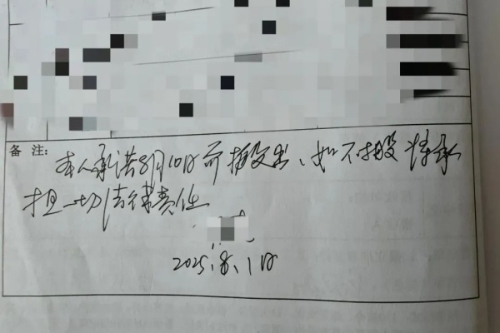 备 注：本人承诺8月10日前搬出、如不搬将承
担一切法律责任
2025.8.1日